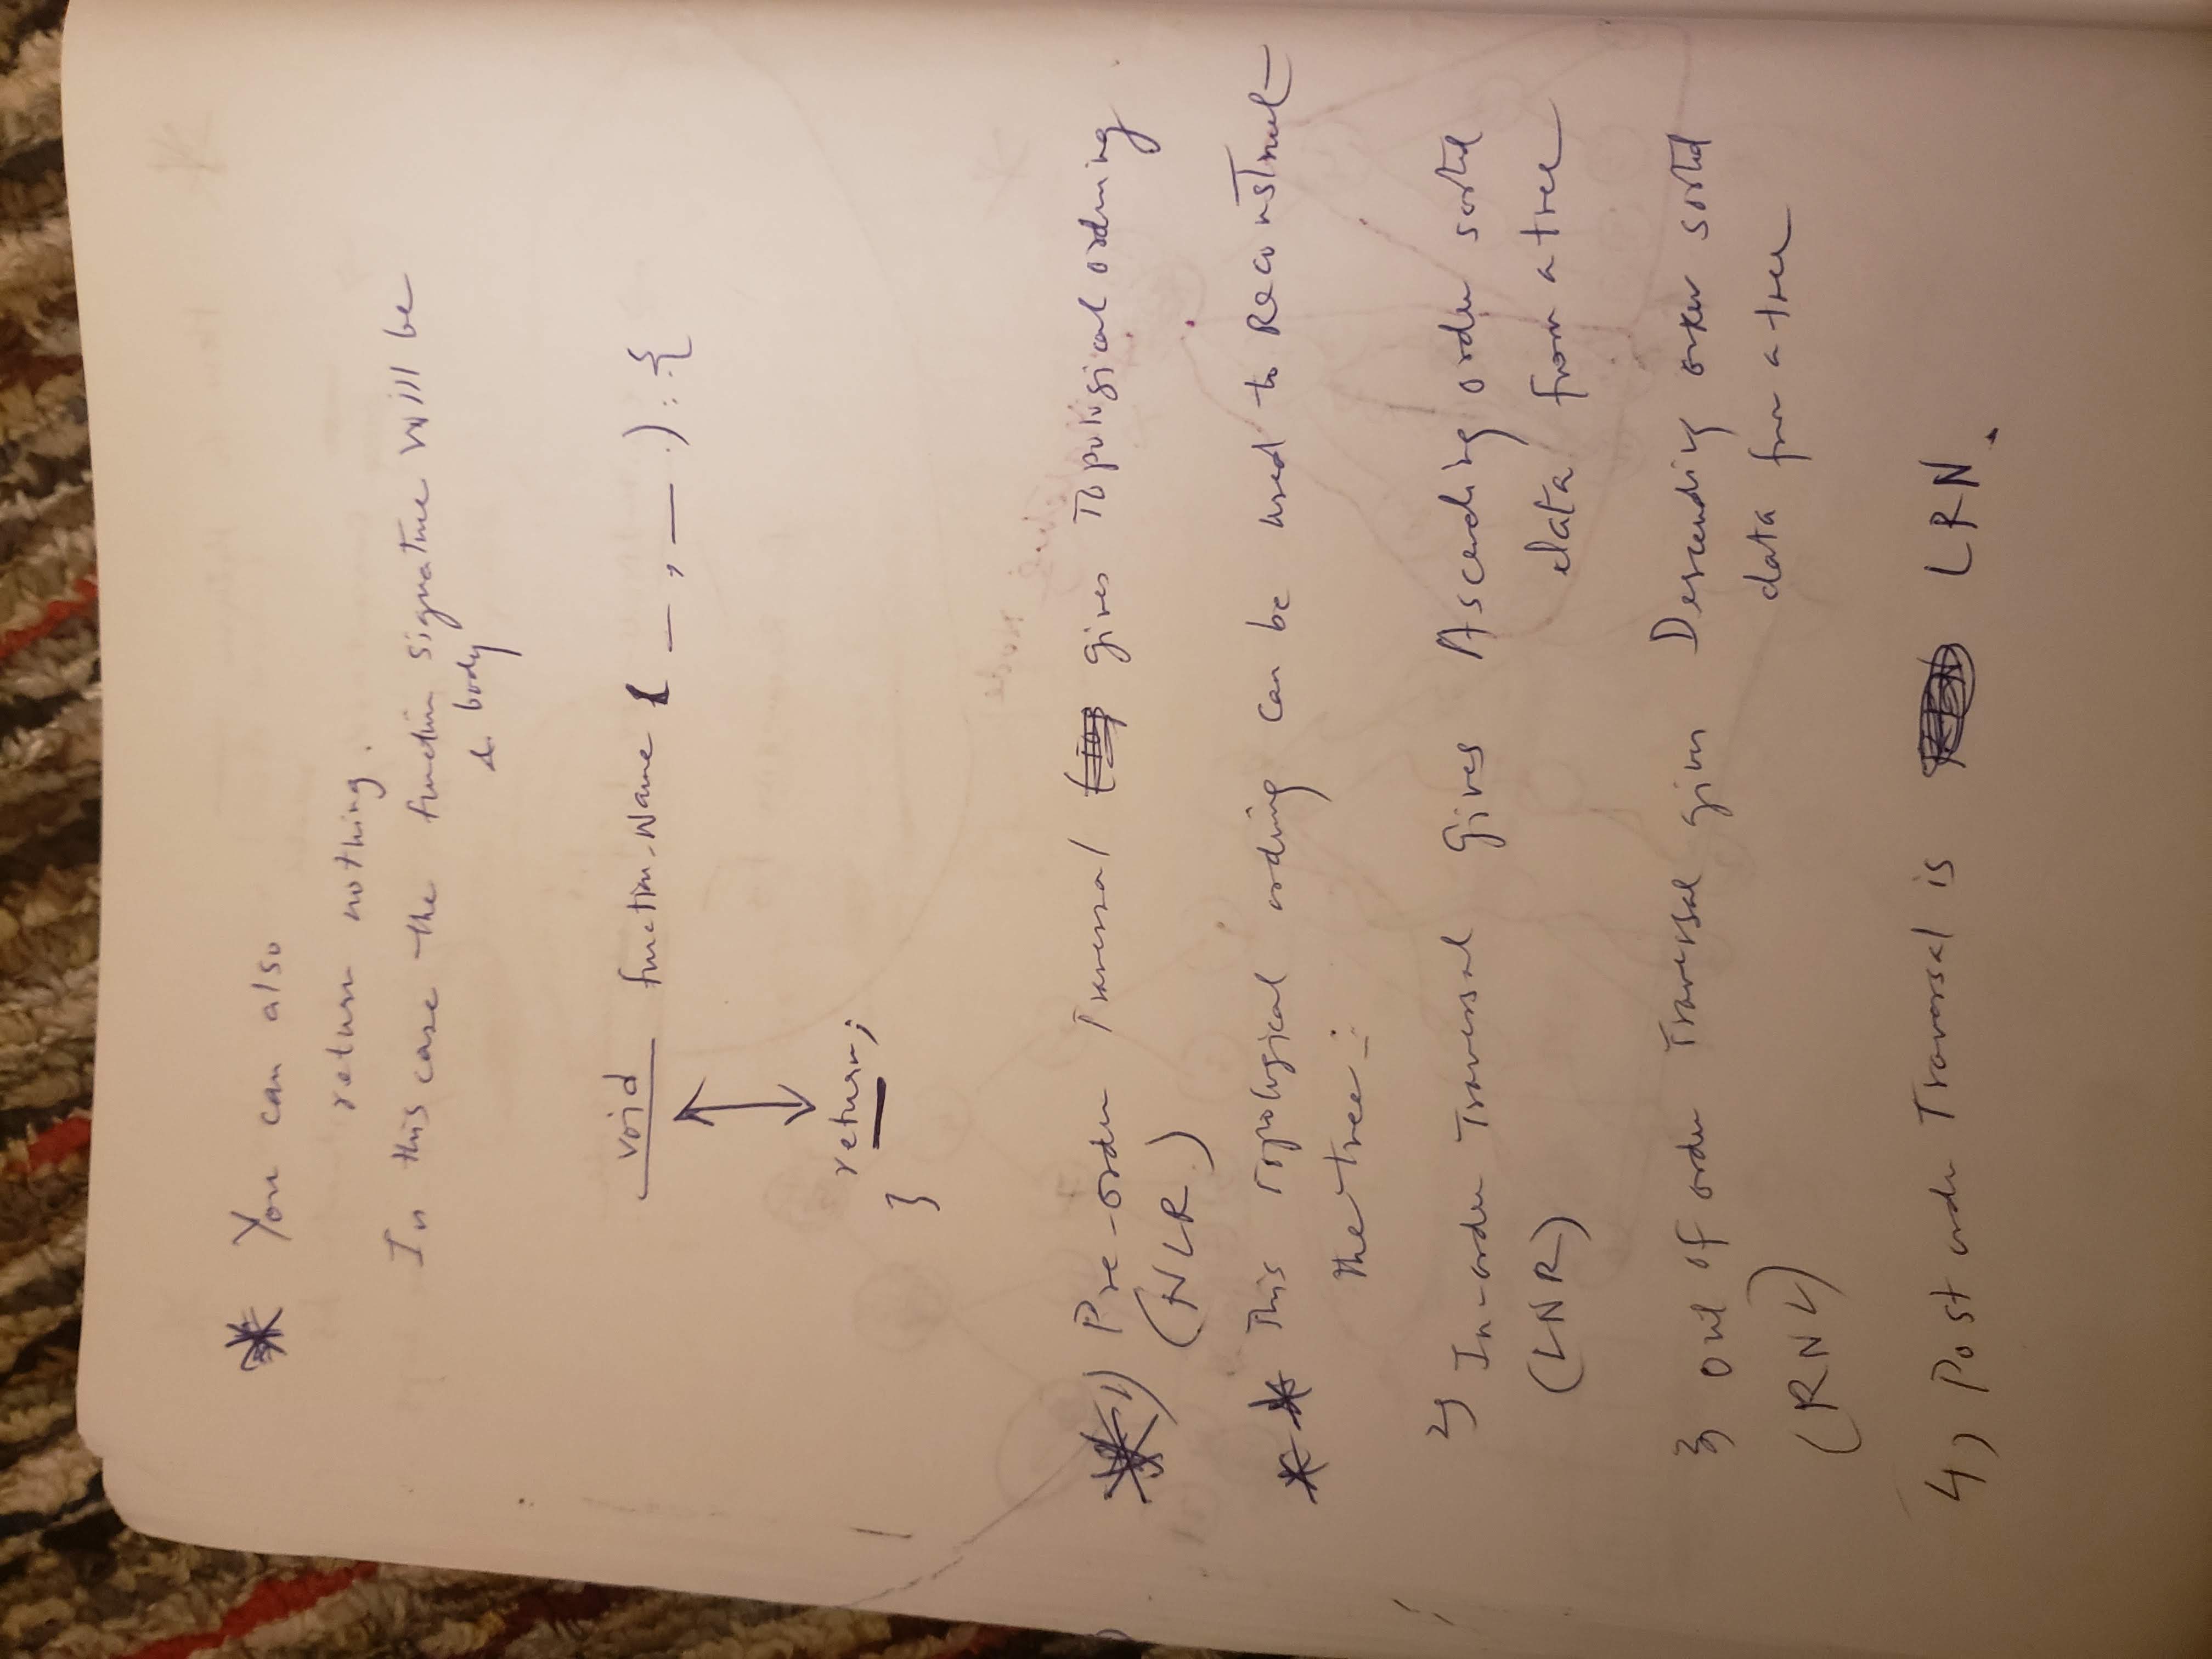 * You can also
return nothing.
In this case the function signature will be
& body
void function-Name ( _ , _ ) {
return;
}
* 1) Pre-order Traversal gives Topological ordering
(NLR)
* * This Topological ordering can be used to Reconstruct
the tree
2) In-order Traversal Gives Ascending order sorted
(LNR) data from a tree
3 out of order Traversal gives Descending order sorted
data from a tree
(RNL)
4) Post order Traversal is LRN.